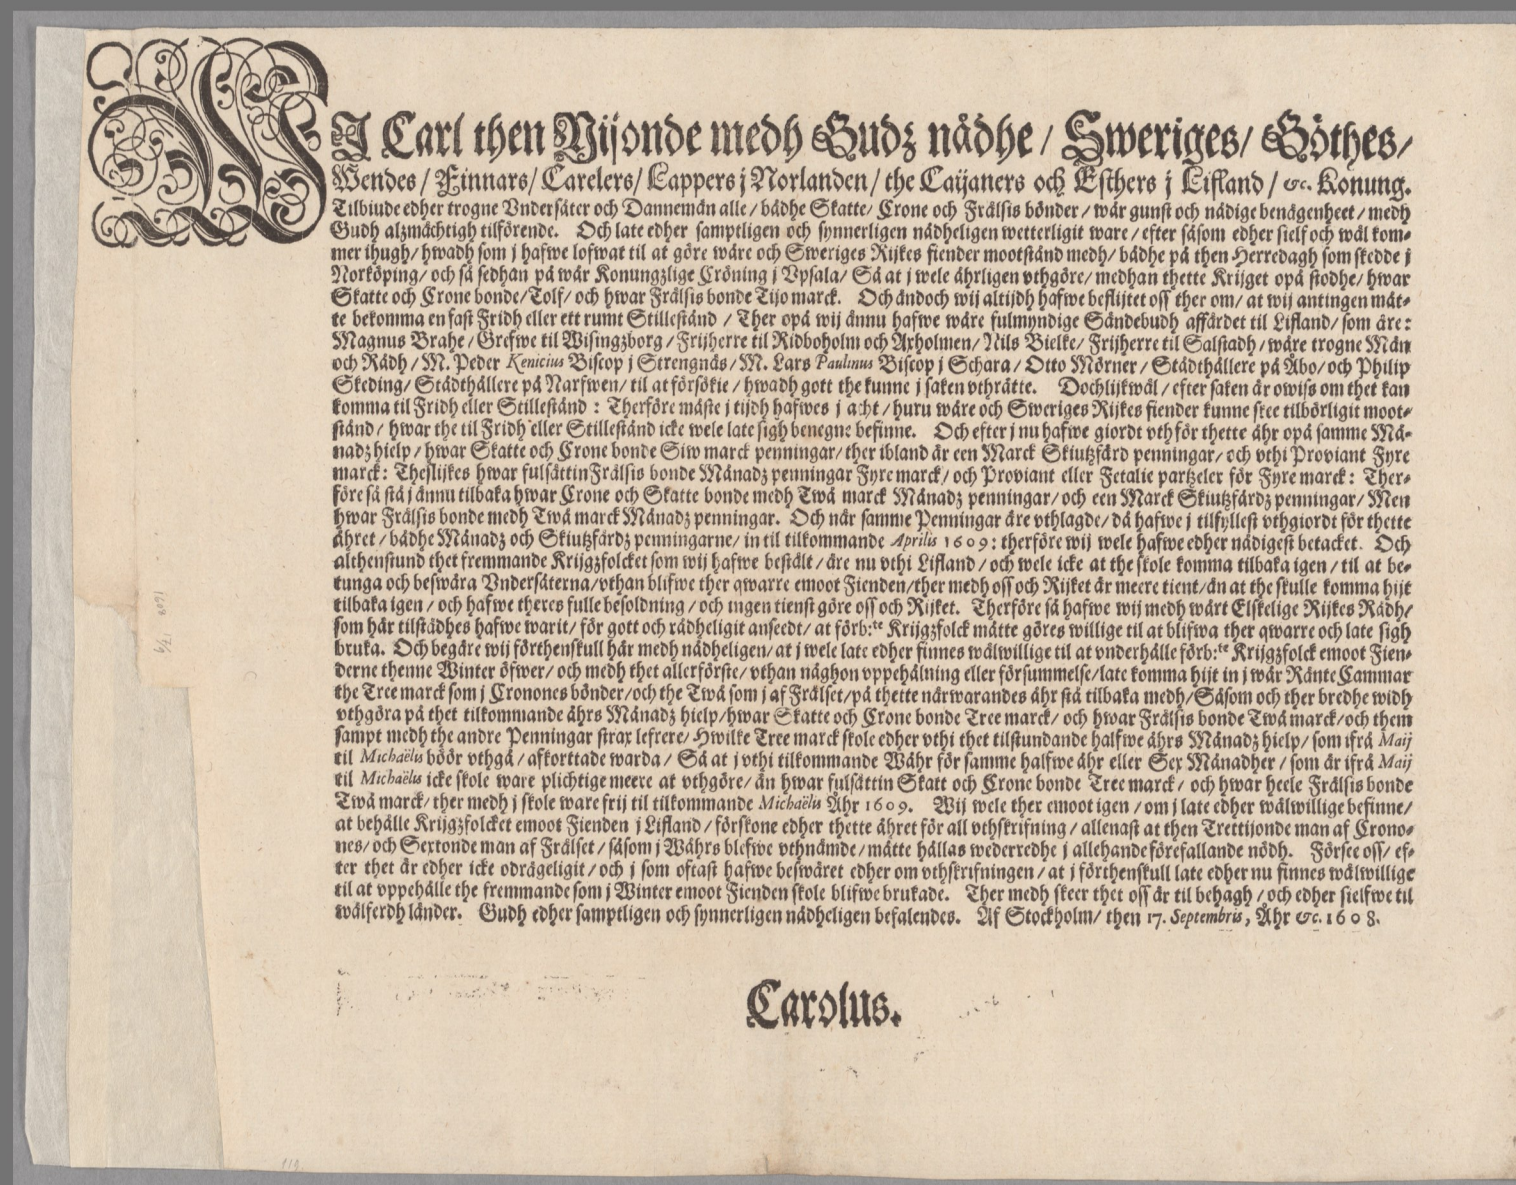 WJ Carl then Nijonde medh Gudz nådhe / Sweriges / Göthes /
Wendes / Finnars / Carelers / Lappers j Norlanden / the Caijaners och Esthers j Lifland / &c. Konung.
Tilbiude edher trogne Vndersåter och Dannemän alle / både Skatte / Crone och Frälsis bönder / wår gunst och nådige benägenheet / medh
Gudh alzmächtigh tilförende. Och late edher samptligen och synnerligen nådheligen wetterligit ware / efter såsom edher sielf och wäl kom-
mer ihugh / hwadh som j hafwe lofwat til at göre wåre och Sweriges Rijkes fiender mootstånd medh / både på then Herredagh som skedde j
Norköping / och så sedhan på wår Konungzlige Cröning j Vpsala / Så at j wele ährligen vthgöre / medhan thette Krijget opå stodhe / hwar
Skatte och Crone bonde / Tolf / och hwar Frälsis bonde Tijo marck. Och ändoch wij altijdh hafwe beflijtet oss ther om / at wij antingen måt-
te bekomma en fast Fridh eller ett rumt Stillestånd / Ther opå wij ännu hafwe wåre fulmyndige Sändebudh affärdet til Lifland / som äre:
Magnus Brahe / Grefwe til Wisingzborg / Frijherre til Ridboholm och Axholmen / Nils Bielke / Frijherre til Salstadh / wåre trogne Män
och Rådh / M. Peder Kenicius Biscop j Strengnäs / M. Lars Paulinus Biscop j Schara / Otto Mörner / Stådthållere på Åbo / och Philip
Skeding / Stådthållere på Narfwen / til at försökie / hwadh gott the kunne j saken vthrätte. Dochlijkwäl / efter saken är owiss om thet kan
komma til Fridh eller Stillestånd : Therföre måste j tijdh hafwes j acht / huru wåre och Sweriges Rijkes fiender kunne skee tilbörligit moot-
stånd / hwar the til Fridh eller Stillestånd icke wele late sigh benegne befinne. Och efter j nu hafwe giordt vth för thette åhr opå samme Må-
nadz hielp / hwar Skatte och Crone bonde Siw marck penningar / ther ibland är een Marck Skiutzfärd penningar / och vthi Proviant Fyre
marck: Theslijkes hwar fulsättin Frälsis bonde Månadz penningar Fyre marck / och Proviant eller Fetalie partzeler för Fyre marck: Ther-
före så stå j ännu tilbaka hwar Crone och Skatte bonde medh Twå marck Månadz penningar / och een Marck Skiutzfärdz penningar / Men
hwar Frälsis bonde medh Twå marck Månadz penningar. Och när samme Penningar äre vthlagde / då hafwe j tilfyllest vthgiordt för thette
åhret / både Månadz och Skiutzfärdz penningarne / in til tilkommande Aprilis 1609: therföre wij wele hafwe edher nådigest betacket. Och
althenstund thet fremmande Krijgzfolcket som wij hafwe bestält / äre nu vthi Lifland / och wele icke at the skole komma tilbaka igen / til at be-
tunga och beswära Vndersåterna / vthan blifwe ther qwarre emoot Fienden / ther medh oss och Rijket är meere tient / än at the skulle komma hijt
tilbaka igen / och hafwe theres fulle besoldning / och ingen tienst göre oss och Rijket. Therföre så hafwe wij medh wårt Elskelige Rijkes Rådh /
som här tilstädhes hafwe warit / för gott och rådheligit anseedt / at förb:te Krijgzfolck måtte göres willige til at blifwa ther qwarre och late sigh
bruka. Och begäre wij förthenskull här medh nådheligen / at j wele late edher finnes wälwillige til at vnderhålle förb:te Krijgzfolck emoot Fien-
derne thenne Winter öfwer / och medh thet allerförste / vthan någhon vppehälning eller försummelse / late komma hijt in j wår Ränte Cammar
the Tree marck som j Cronones bönder / och the Twå som j af Frälset / på thette närwarandes åhr stå tilbaka medh / Såsom och ther bredhe widh
vthgöra på thet tilkommande åhrs Månadz hielp / hwar Skatte och Crone bonde Tree marck / och hwar Frälsis bonde Twå marck / och them
sampt medh the andre Penningar strax lefrere / Hwilke Tree marck skole edher vthi thet tilstundande halfwe åhrs Månadz hielp / som ifrå Maij
til Michaëlis böör vthgå / afkorttade warda / Så at j vthi tilkommande Wåhr för samme halfwe åhr eller Sex Månadher / som är ifrå Maij
til Michaëlis icke skole ware plichtige meere at vthgöre / än hwar fulsättin Skatt och Crone bonde Tree marck / och hwar heele Frälsis bonde
Twå marck / ther medh j skole ware frij til tilkommande Michaëlis Åhr 1609. Wij wele ther emoot igen / om j late edher wälwillige befinne /
at behålle Krijgzfolcket emoot Fienden j Lifland / förskone edher thette åhret för all vthskrifning / allenast at then Trettijonde man af Crono-
nes / och Sextonde man af Frälset / såsom j Wåhrs blefwe vthnämde / måtte hållas wederredhe j allehande förefallande nödh. Försee oss / ef-
ter thet är edher icke odrägeligit / och j som oftast hafwe beswäret edher om vthskrifningen / at j förthenskull late edher nu finnes wälwillige
til at vppehålle the fremmande som j Winter emoot Fienden skole blifwe brukade. Ther medh skeer thet oss är til behagh / och edher sielfwe til
wälferdh länder. Gudh edher samptligen och synnerligen nådheligen befalendes. Af Stockholm / then 17. Septembris, Åhr &c. 1608.
Carolus.
1608 17/9
119